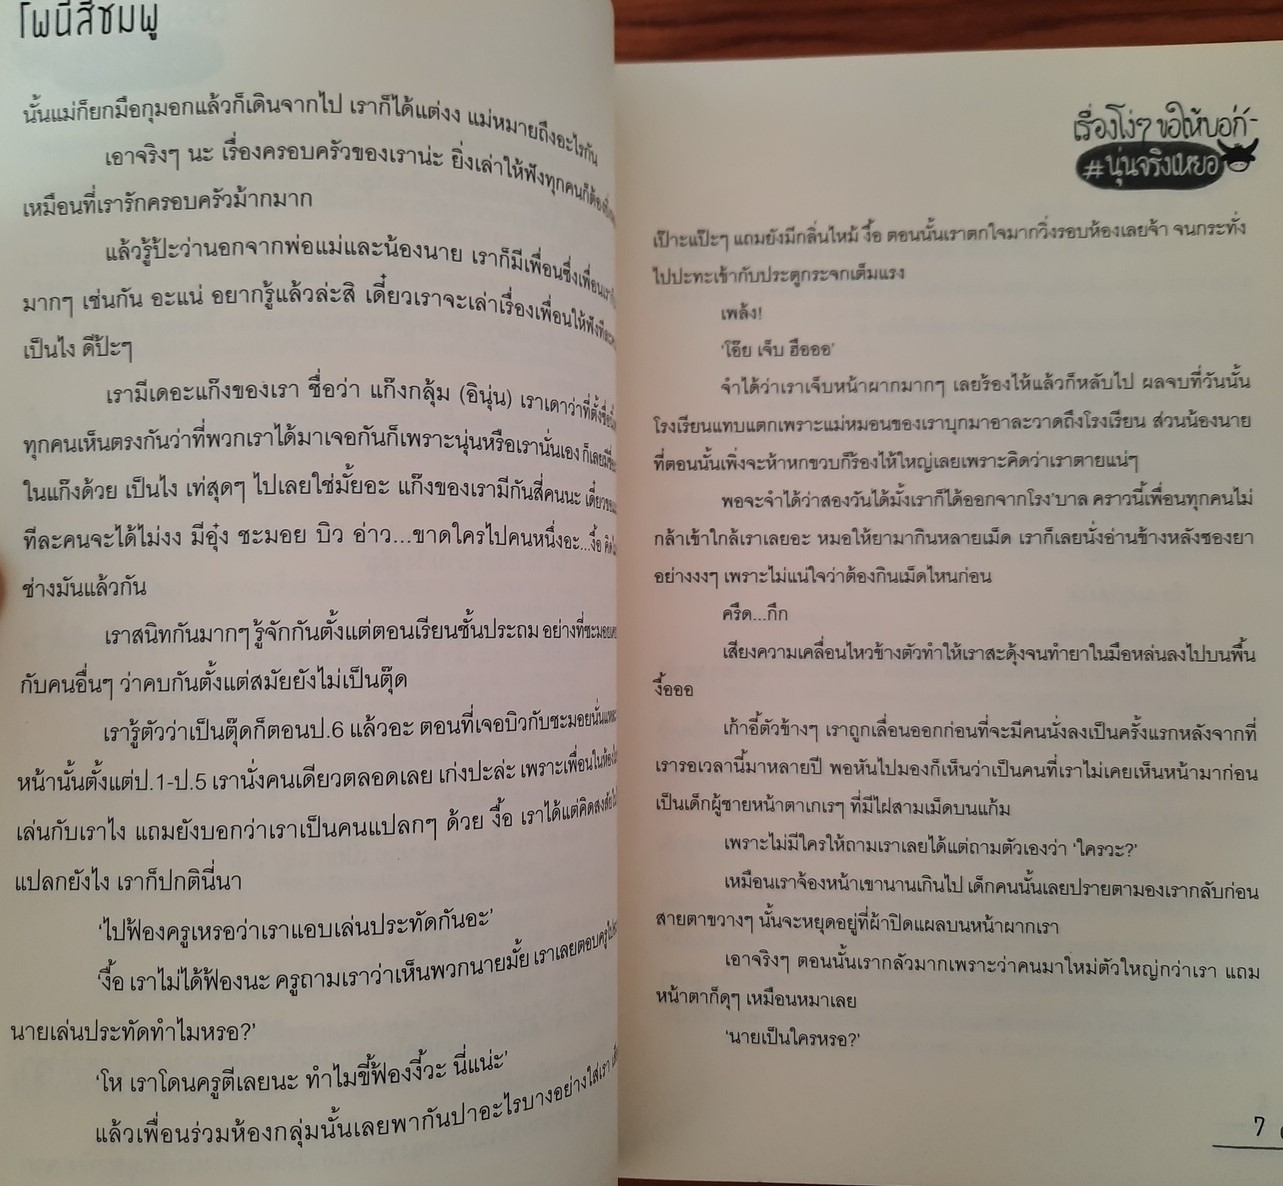 โพนี่สีชมพู
นั้นแม่ก็ยกมือกุมอกแล้วก็เดินจากไป เราก็ได้แต่งง แม่หมายถึงอะไรกัน
เอาจริงๆ นะ เรื่องครอบครัวของเราน่ะ ยิ่งเล่าให้ฟังทุกคนก็ต้อง
เหมือนที่เรารักครอบครัวม้ากมาก
แล้วรู้ป้ะว่านอกจากพ่อแม่และน้องนาย เราก็มีเพื่อนซึ่งเพื่อน
มากๆ เช่นกัน อะแน่ อยากรู้แล้วล่ะสิ เดี๋ยวเราจะเล่าเรื่องเพื่อนให้ฟัง
เป็นไง ดีป้ะๆ
เรามีเดอะแก๊งของเรา ชื่อว่า แก๊งกลุ้ม (อินุ่น) เราเดาว่าที่ตั้งชื่อ
ทุกคนเห็นตรงกันว่าที่พวกเราได้มาเจอกันก็เพราะนุ่นหรือเรานั่นเอง ก็เลย
ในแก๊งด้วย เป็นไง เท่สุดๆ ไปเลยใช่มั้ยอะ แก๊งของเรามีกันสี่คนนะ
ทีละคนจะได้ไม่งง มีอุ๋ง ชะมอย บิว อ่าว...ขาดใครไปคนหนึ่งอะ...งื้อ
ช่างมันแล้วกัน
เราสนิทกันมากๆ รู้จักกันตั้งแต่ตอนเรียนชั้นประถม อย่างที่ชะมอย
กับคนอื่นๆ ว่าคบกันตั้งแต่สมัยยังไม่เป็นตุ๊ด
เรารู้ตัวว่าเป็นตุ๊ดก็ตอนป.6 แล้วอะ ตอนที่เจอบิวกับชะมอยนั่น
หน้านั้นตั้งแต่ป.1-ป.5 เรานั่งคนเดียวตลอดเลย เก่งปะล่ะ เพราะเพื่อนในห้อง
เล่นกับเราไง แถมยังบอกว่าเราเป็นคนแปลกๆ ด้วย งื้อ เราได้แต่คิดสงสัย
แปลกยังไง เราก็ปกตินี่นา
‘ไปฟ้องครูเหรอว่าเราแอบเล่นประทัดกันอะ’
‘งื้อ เราไม่ได้ฟ้องนะ ครูถามเราว่าเห็นพวกนายมั้ย เราเลยตอบครู
นายเล่นประทัดทำไมหรอ?’
‘โห เราโดนครูตีเลยนะ ทำไมขี้ฟ้องงี้วะ นี่แน่ะ’
แล้วเพื่อนร่วมห้องกลุ่มนั้นเลยพากันปาอะไรบางอย่างใส่เรา
เรื่องโง่ๆ ขอให้บอก
#นุ่นจริงเหยอ
เป๊าะแป๊ะๆ แถมยังมีกลิ่นไหม้ งื้อ ตอนนั้นเราตกใจมากวิ่งรอบห้องเลยจ้า จนกระทั่ง
ไปปะทะเข้ากับประตูกระจกเต็มแรง
เพล้ง!
‘โอ๊ย เจ็บ ฮือออ’
จำได้ว่าเราเจ็บหน้าผากมากๆ เลยร้องไห้แล้วก็หลับไป ผลจบที่วันนั้น
โรงเรียนแทบแตกเพราะแม่หมอนของเราบุกมาอาละวาดถึงโรงเรียน ส่วนน้องนาย
ที่ตอนนั้นเพิ่งจะห้าหกขวบก็ร้องไห้ใหญ่เลยเพราะคิดว่าเราตายแน่ๆ
พอจะจำได้ว่าสองวันได้มั้งเราก็ได้ออกจากโรง'บาล คราวนี้เพื่อนทุกคนไม่
กล้าเข้าใกล้เราเลยอะ หมอให้ยามากินหลายเม็ด เราก็เลยนั่งอ่านข้างหลังซองยา
อย่างงงๆ เพราะไม่แน่ใจว่าต้องกินเม็ดไหนก่อน
ครืด...กึก
เสียงความเคลื่อนไหวข้างตัวทำให้เราสะดุ้งจนทำยาในมือหล่นลงไปบนพื้น
งื้อออ
เก้าอี้ตัวข้างๆ เราถูกเลื่อนออกก่อนที่จะมีคนนั่งลงเป็นครั้งแรกหลังจากที่
เรารอเวลานี้มาหลายปี พอหันไปมองก็เห็นว่าเป็นคนที่เราไม่เคยเห็นหน้ามาก่อน
เป็นเด็กผู้ชายหน้าตาเกเรๆ ที่มีไฝสามเม็ดบนแก้ม
เพราะไม่มีใครให้ถามเราเลยได้แต่ถามตัวเองว่า ‘ใครวะ?’
เหมือนเราจ้องหน้าเขานานเกินไป เด็กคนนั้นเลยปรายตามองเรากลับก่อน
สายตาขวางๆ นั้นจะหยุดอยู่ที่ผ้าปิดแผลบนหน้าผากเรา
เอาจริงๆ ตอนนั้นเรากลัวมากเพราะว่าคนมาใหม่ตัวใหญ่กว่าเรา แถม
หน้าตาก็ดุๆ เหมือนหมาเลย
‘นายเป็นใครหรอ?’
7